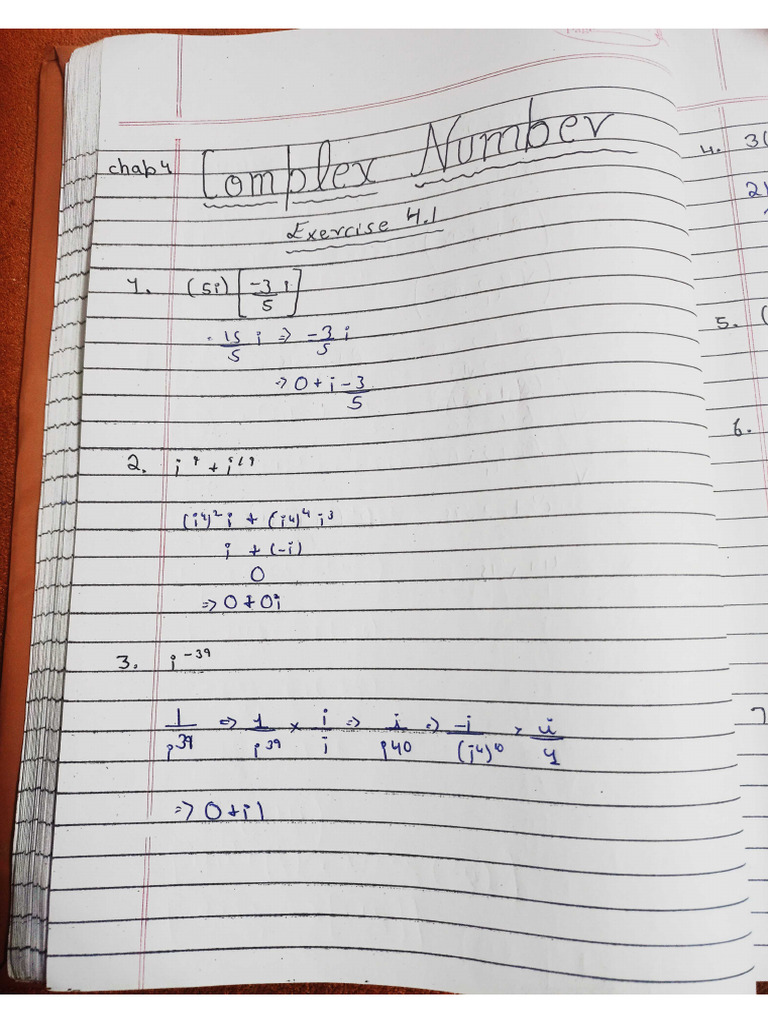 chap 4 Complex Number
Exercise 4.1
1. (5i) [-3/5 i]
-15/5 i => -3/5 i
=> 0 + i -3/5
2. i⁹ + i¹⁹
(i⁴)² i + (i⁴)⁴ i³
i + (-i)
0
=> 0 + 0i
3. i⁻³⁹
1/i³⁹ => 1/i³⁹ × i/i => i/i⁴⁰ => -i/(i⁴)¹⁰ > i/1
=> 0 + i1
4. 3(
2)
5. (
6.
7